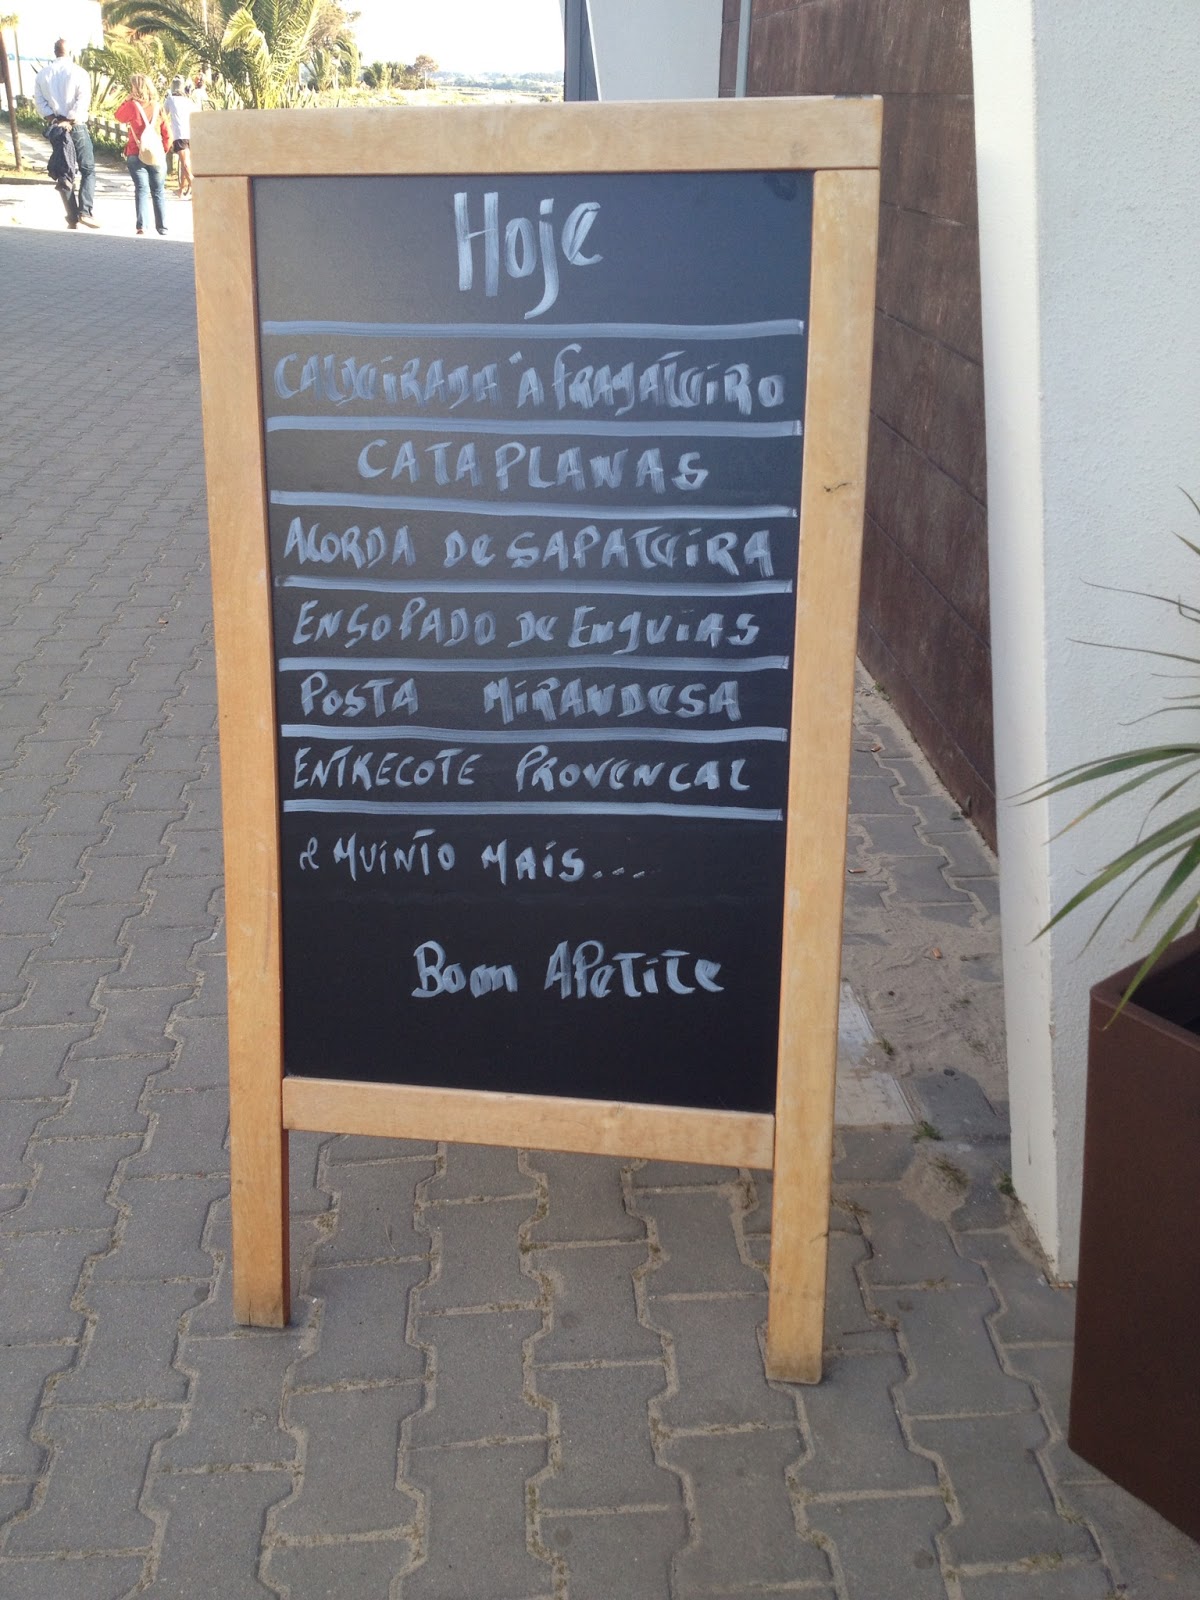 Hoje
CALDEIRADA À FRAGATEIRO
CATAPLANAS
ACORDA De SAPATEIRA
ENSOPADO De Enguias
POSTA MIRANDESA
ENTRECOTE PROVENCAL
e MUINTO MAIS...
Bom APetite